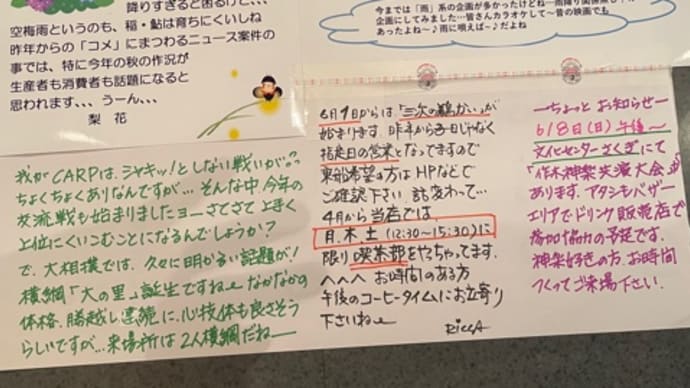 降りすぎると困るけど、
空梅雨というのも、稲・鮎は育ちにくいしね
昨年からの「コメ」にまつわるニュース案件の
事では、特に今年の秋の作況が
生産者も消費者も話題になると
思われます、、、うーん、、、
梨 花
今までは「雨」系の企画が多かったけどね
企画にしてみました…皆さんカラオケして〜昔の映画でも
あったよね〜♪雨に唄えば〜♪だよね
我がCARPは、シャキッ!としない戦いが
ちょくちょくありなんですが…そんな中、今年の
交流戦も始まりましたヨーさてさて上手く
上位にくいこむことになるんでしょうか?
で、大相撲では、久々に明かるい話題が!
横綱「大の里」誕生ですねェなかなかの
体格、勝越し連続に、心技体も良さそう
らしいですが…来場所は2人横綱だねー
6月1日からは、「三次の鵜かい」が
始まります。昨年から毎日じゃなく
指定日の営業となってますので
乗船希望の方はHPなどで
ご確認下さい。話変わって…
4月から当店では、
月、木、土(12:30〜15:30)に
限り喫茶部をやっちゃってます。
へへへ お時間のある方
午後のコーヒータイムにお立寄り
下さいねェ
RiccA
ーちょっと お知らせー
6/8日(日)午後〜
文化センターさくぎにて
「作木神楽共演大会」
あります。アタシもバザー
エリアでドリンク販売店で
参加協力の予定です。
神楽好きの方 お時間
つくってご来場下さい。